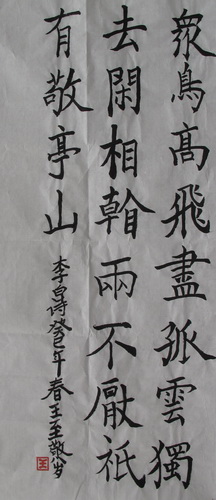 衆鳥高飛盡孤雲獨
去閑相翰兩不厭祗
有敬亭山
李白詩癸巳年春王至敬书
王